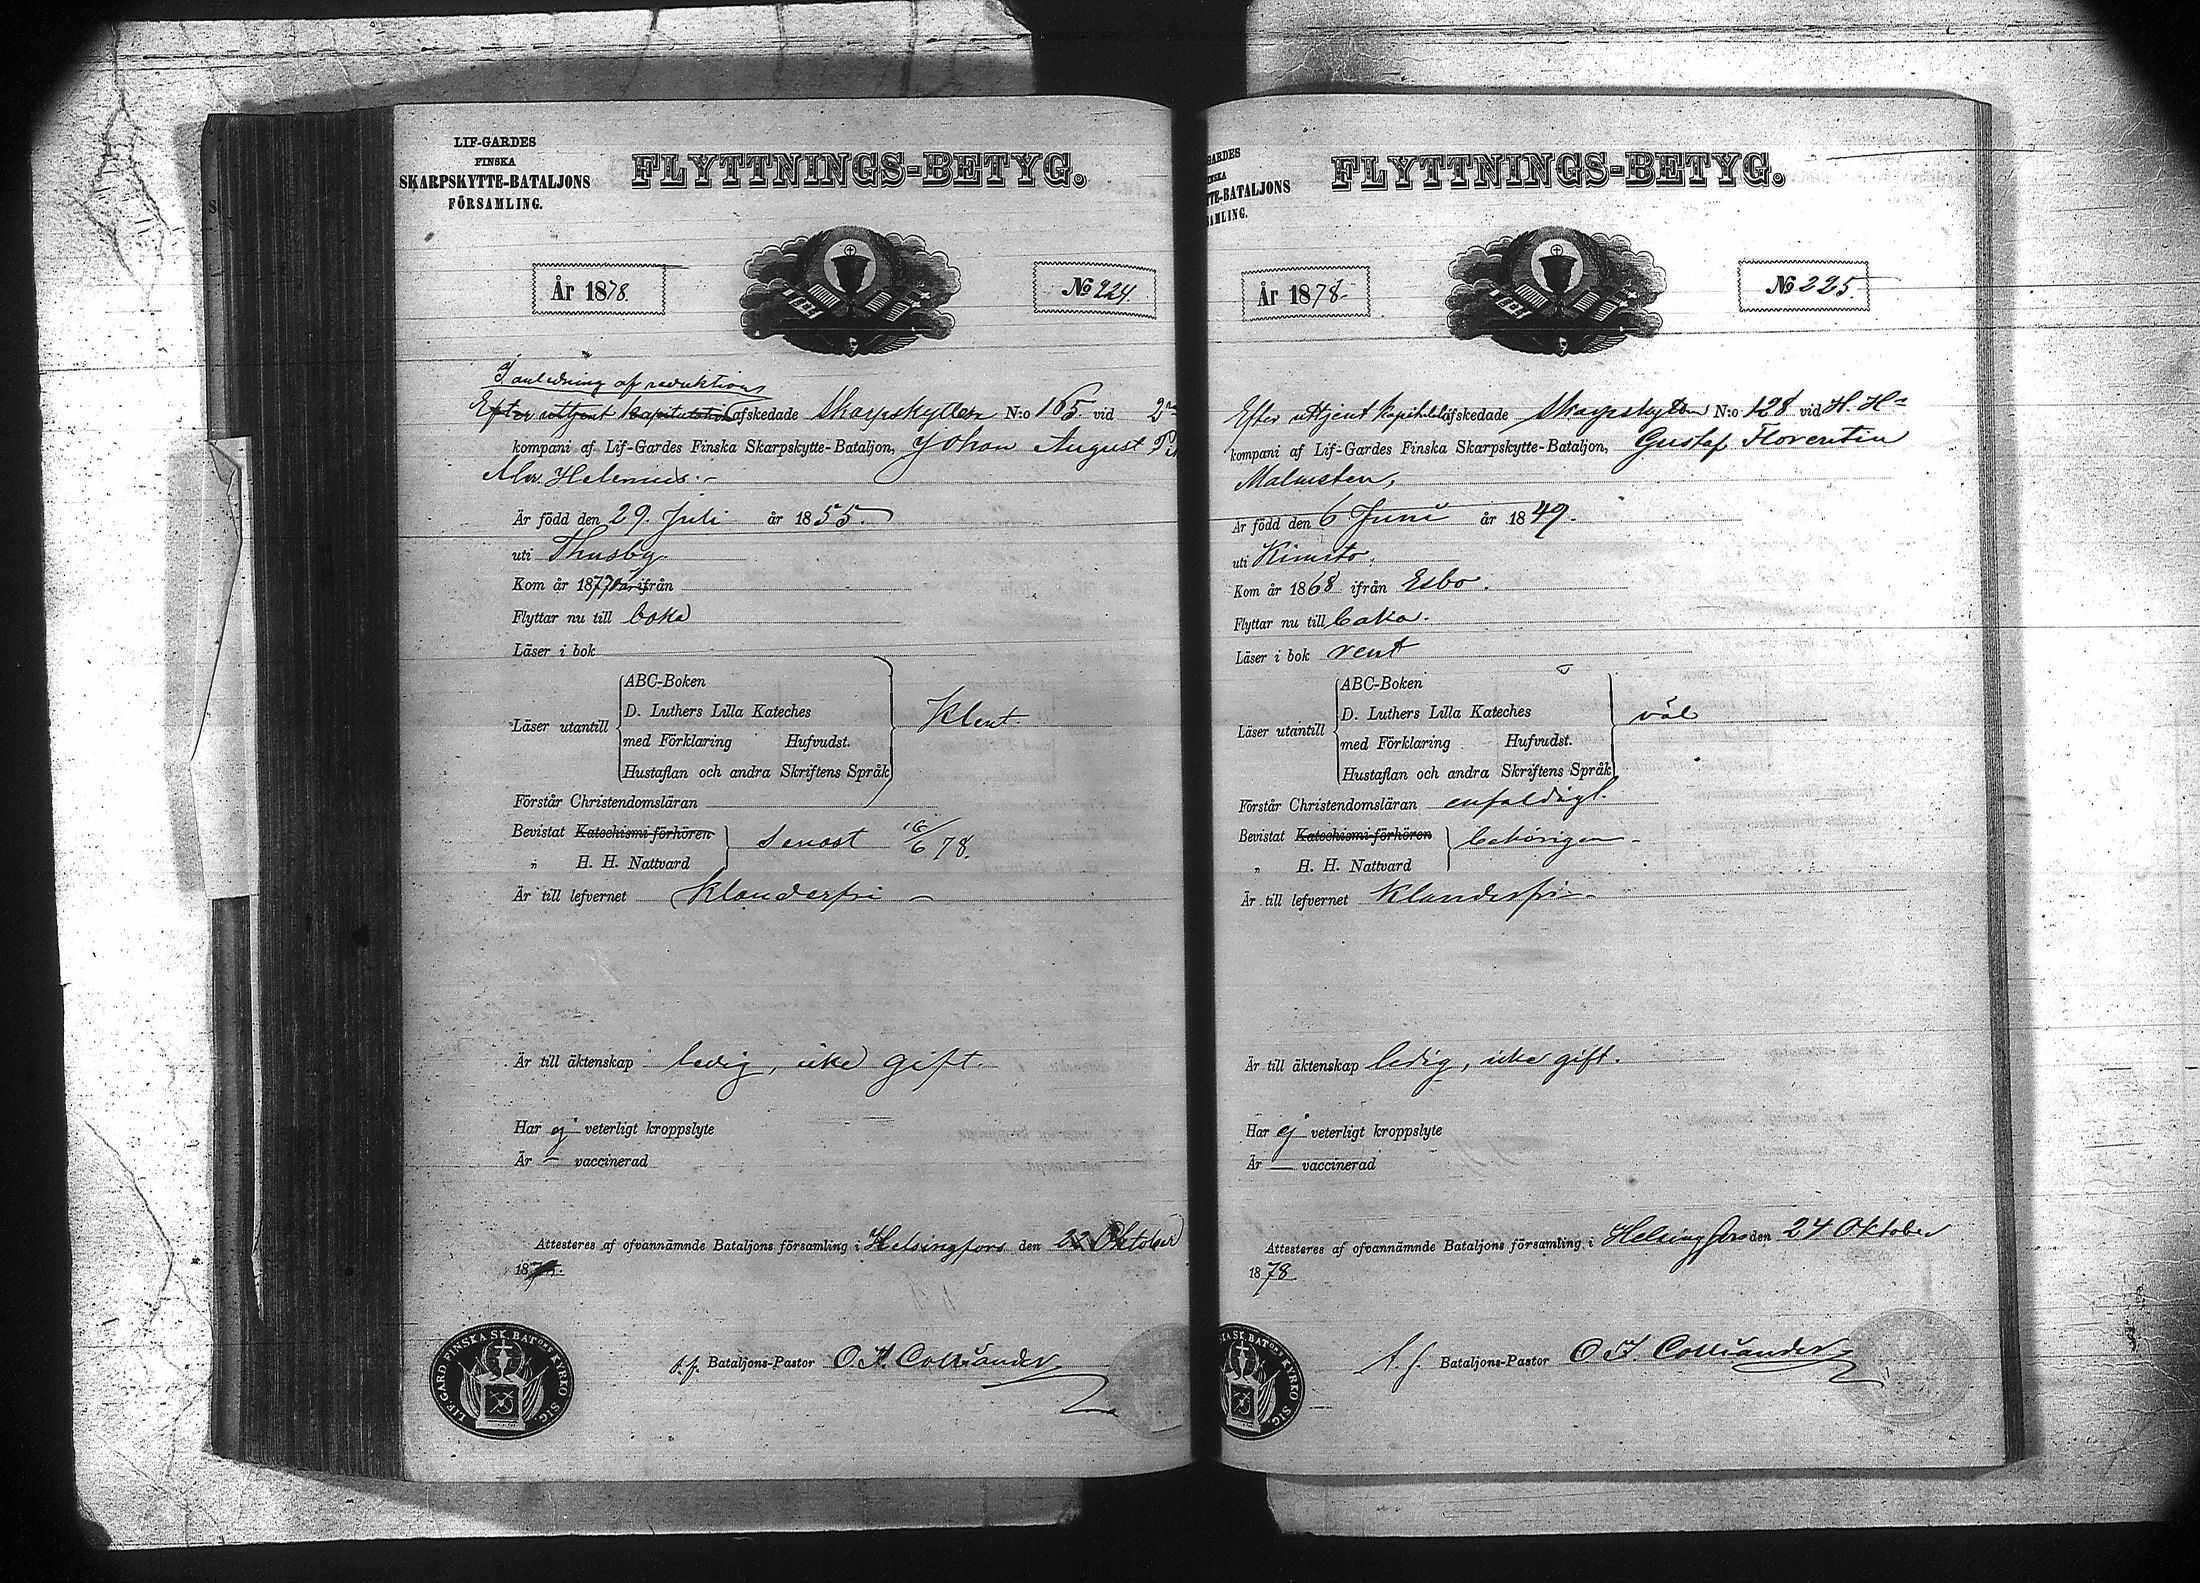 LIF-GARDES
FINSKA
SKARPSKYTTE-BATALJONS
FÖRSAMLING.
FLYTTNINGS-BETYG.
År 1878.
No 224.
I anledning af reduktion
Efter uttjent kapitulation afskedade Skarpskytten N:o 165 vid 2
kompani af Lif-Gardes Finska Skarpskytte-Bataljon, Johan August
Helenius.
Är född den 29. Juli år 1855.
uti Thusby
Kom år 1877 ifrån
Flyttar nu till boka
Läser i bok
ABC-Boken
D. Luthers Lilla Kateches
Läser utantill
med Förklaring Hufvudst.
Klent.
Hustaflan och andra Skriftens Språk
Förstår Christendomsläran
Bevistat Katechismi-förhören
senast 16/6 78.
„ H. H. Nattvard
Är till lefvernet Klanderfri
Är till äktenskap ledig, icke gift.
Har ej veterligt kroppslyte
Är — vaccinerad
Attesteres af ofvannämnde Bataljons församling i Helsingfors den 22 Oktober
187
t.f. Bataljons-Pastor O. I. Colliander
LIF-GARD. FINSKA SK. BAT:ONS KYRKO SIG.
GARDES
TTE-BATALJONS
AMLING.
FLYTTNINGS-BETYG.
År 1878.
No 225.
Efter uttjent kapitul. afskedade Skarpskytten N:o 128 vid H. H:s
kompani af Lif-Gardes Finska Skarpskytte-Bataljon, Gustaf Florentin
Malmsten,
Är född den 6 Juni år 1849.
uti Kimito.
Kom år 1868 ifrån Esbo.
Flyttar nu till baka.
Läser i bok rent
ABC-Boken
D. Luthers Lilla Kateches
Läser utantill
med Förklaring Hufvudst.
väl
Hustaflan och andra Skriftens Språk
Förstår Christendomsläran enfaldigt.
Bevistat Katechismi-förhören
behörigen
„ H. H. Nattvard
Är till lefvernet Klanderfri
Är till äktenskap ledig, icke gift.
Har ej veterligt kroppslyte
Är — vaccinerad
Attesteres af ofvannämnde Bataljons församling i Helsingfors den 24 Oktober
1878.
t.f. Bataljons-Pastor O. I. Colliander
KA SK. BAT:ONS KYRKO SIG.